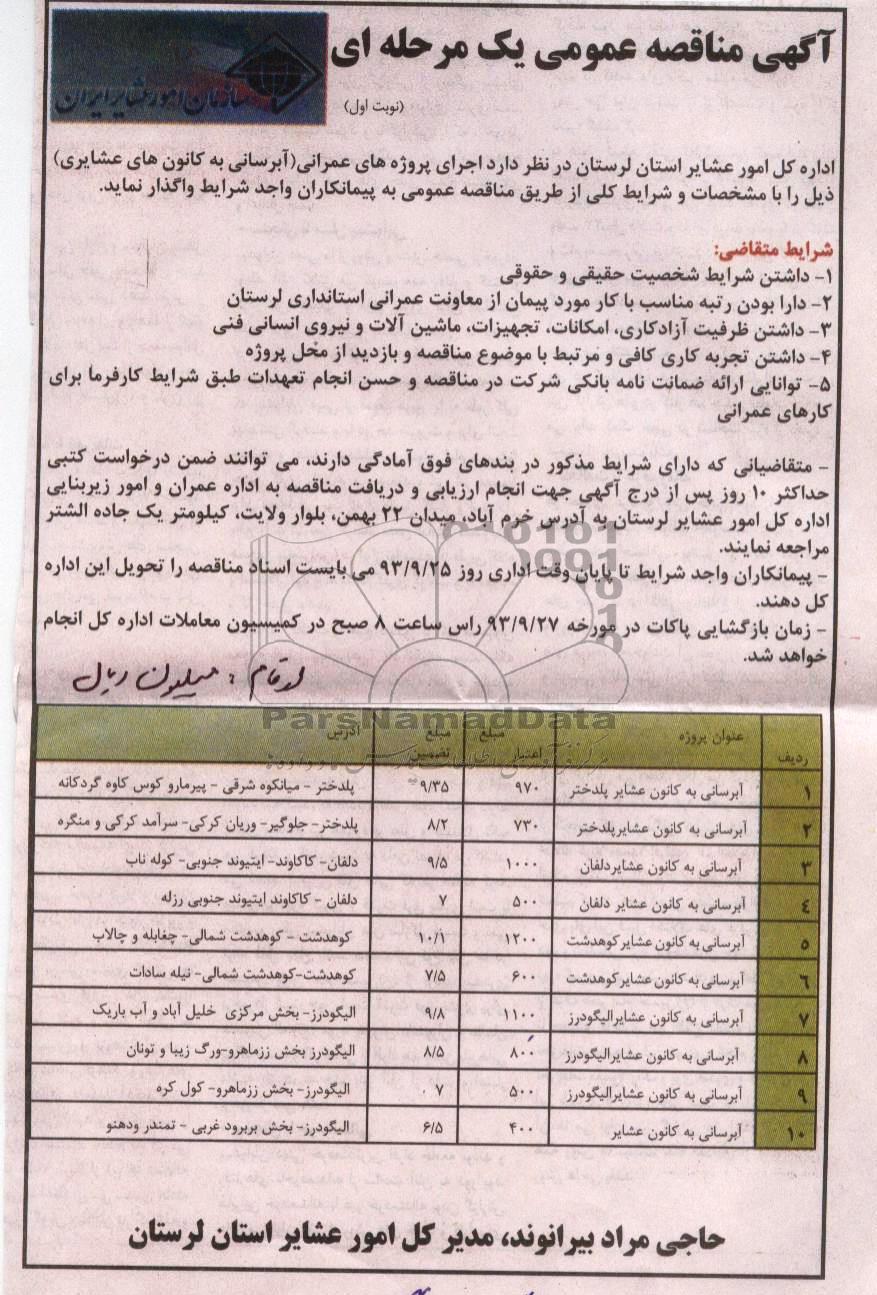 آگهی مناقصه عمومی یک مرحله ای
سازمان امور عشایر ایران
(نوبت اول)
اداره کل امور عشایر استان لرستان در نظر دارد اجرای پروژه های عمرانی(آبرسانی به کانون های عشایری)
ذیل را با مشخصات و شرایط کلی از طریق مناقصه عمومی به پیمانکاران واجد شرایط واگذار نماید.
شرایط متقاضی:
۱- داشتن شرایط شخصیت حقیقی و حقوقی
۲- دارا بودن رتبه مناسب با کار مورد پیمان از معاونت عمرانی استانداری لرستان
۳- داشتن ظرفیت آزادکاری، امکانات، تجهیزات، ماشین آلات و نیروی انسانی فنی
۴- داشتن تجربه کاری کافی و مرتبط با موضوع مناقصه و بازدید از محل پروژه
۵- توانایی ارائه ضمانت نامه بانکی شرکت در مناقصه و حسن انجام تعهدات طبق شرایط کارفرما برای
کارهای عمرانی
- متقاضیانی که دارای شرایط مذکور در بندهای فوق آمادگی دارند، می توانند ضمن درخواست کتبی
حداکثر ۱۰ روز پس از درج آگهی جهت انجام ارزیابی و دریافت مناقصه به اداره عمران و امور زیربنایی
اداره کل امور عشایر لرستان به آدرس خرم آباد، میدان ۲۲ بهمن، بلوار ولایت، کیلومتر یک جاده الشتر
مراجعه نمایند.
- پیمانکاران واجد شرایط تا پایان وقت اداری روز ۹۳/۹/۲۵ می بایست اسناد مناقصه را تحویل این اداره
کل دهند.
- زمان بازگشایی پاکات در مورخه ۹۳/۹/۲۷ راس ساعت ۸ صبح در کمیسیون معاملات اداره کل انجام
خواهد شد.
ارقام : میلیون ریال
ParsNamadData
ردیف عنوان پروژه مبلغ اعتبار مبلغ تضمین آدرس
۱ آبرسانی به کانون عشایر پلدختر ۹۷۰ ۹/۳۵ پلدختر - میانکوه شرقی - پیرمارو کوس کاوه گردکانه
۲ آبرسانی به کانون عشایرپلدختر ۷۳۰ ۸/۲ پلدختر- جلوگیر- وریان کرکی- سرآمد کرکی و منگره
۳ آبرسانی به کانون عشایردلفان ۱۰۰۰ ۹/۵ دلفان- کاکاوند- ایتیوند جنوبی- کوله ناب
۴ آبرسانی به کانون عشایر دلفان ۵۰۰ ۷ دلفان - کاکاوند ایتیوند جنوبی رزله
۵ آبرسانی به کانون عشایرکوهدشت ۱۲۰۰ ۱۰/۱ کوهدشت - کوهدشت شمالی- چغابله و چالاب
۶ آبرسانی به کانون عشایرکوهدشت ۶۰۰ ۷/۵ کوهدشت-کوهدشت شمالی- نیله سادات
۷ آبرسانی به کانون عشایرالیگودرز ۱۱۰۰ ۹/۸ الیگودرز- بخش مرکزی خلیل آباد و آب باریک
۸ آبرسانی به کانون عشایرالیگودرز ۸۰۰ ۸/۵ الیگودرز بخش ززماهرو-ورگ زیبا و تونان
۹ آبرسانی به کانون عشایرالیگودرز ۵۰۰ ۷ الیگودرز- بخش ززماهرو- کول کره
۱۰ آبرسانی به کانون عشایر ۴۰۰ ۶/۵ الیگودرز- بخش بربرود غربی - تمندر ودهنو
حاجی مراد بیرانوند، مدیر کل امور عشایر استان لرستان